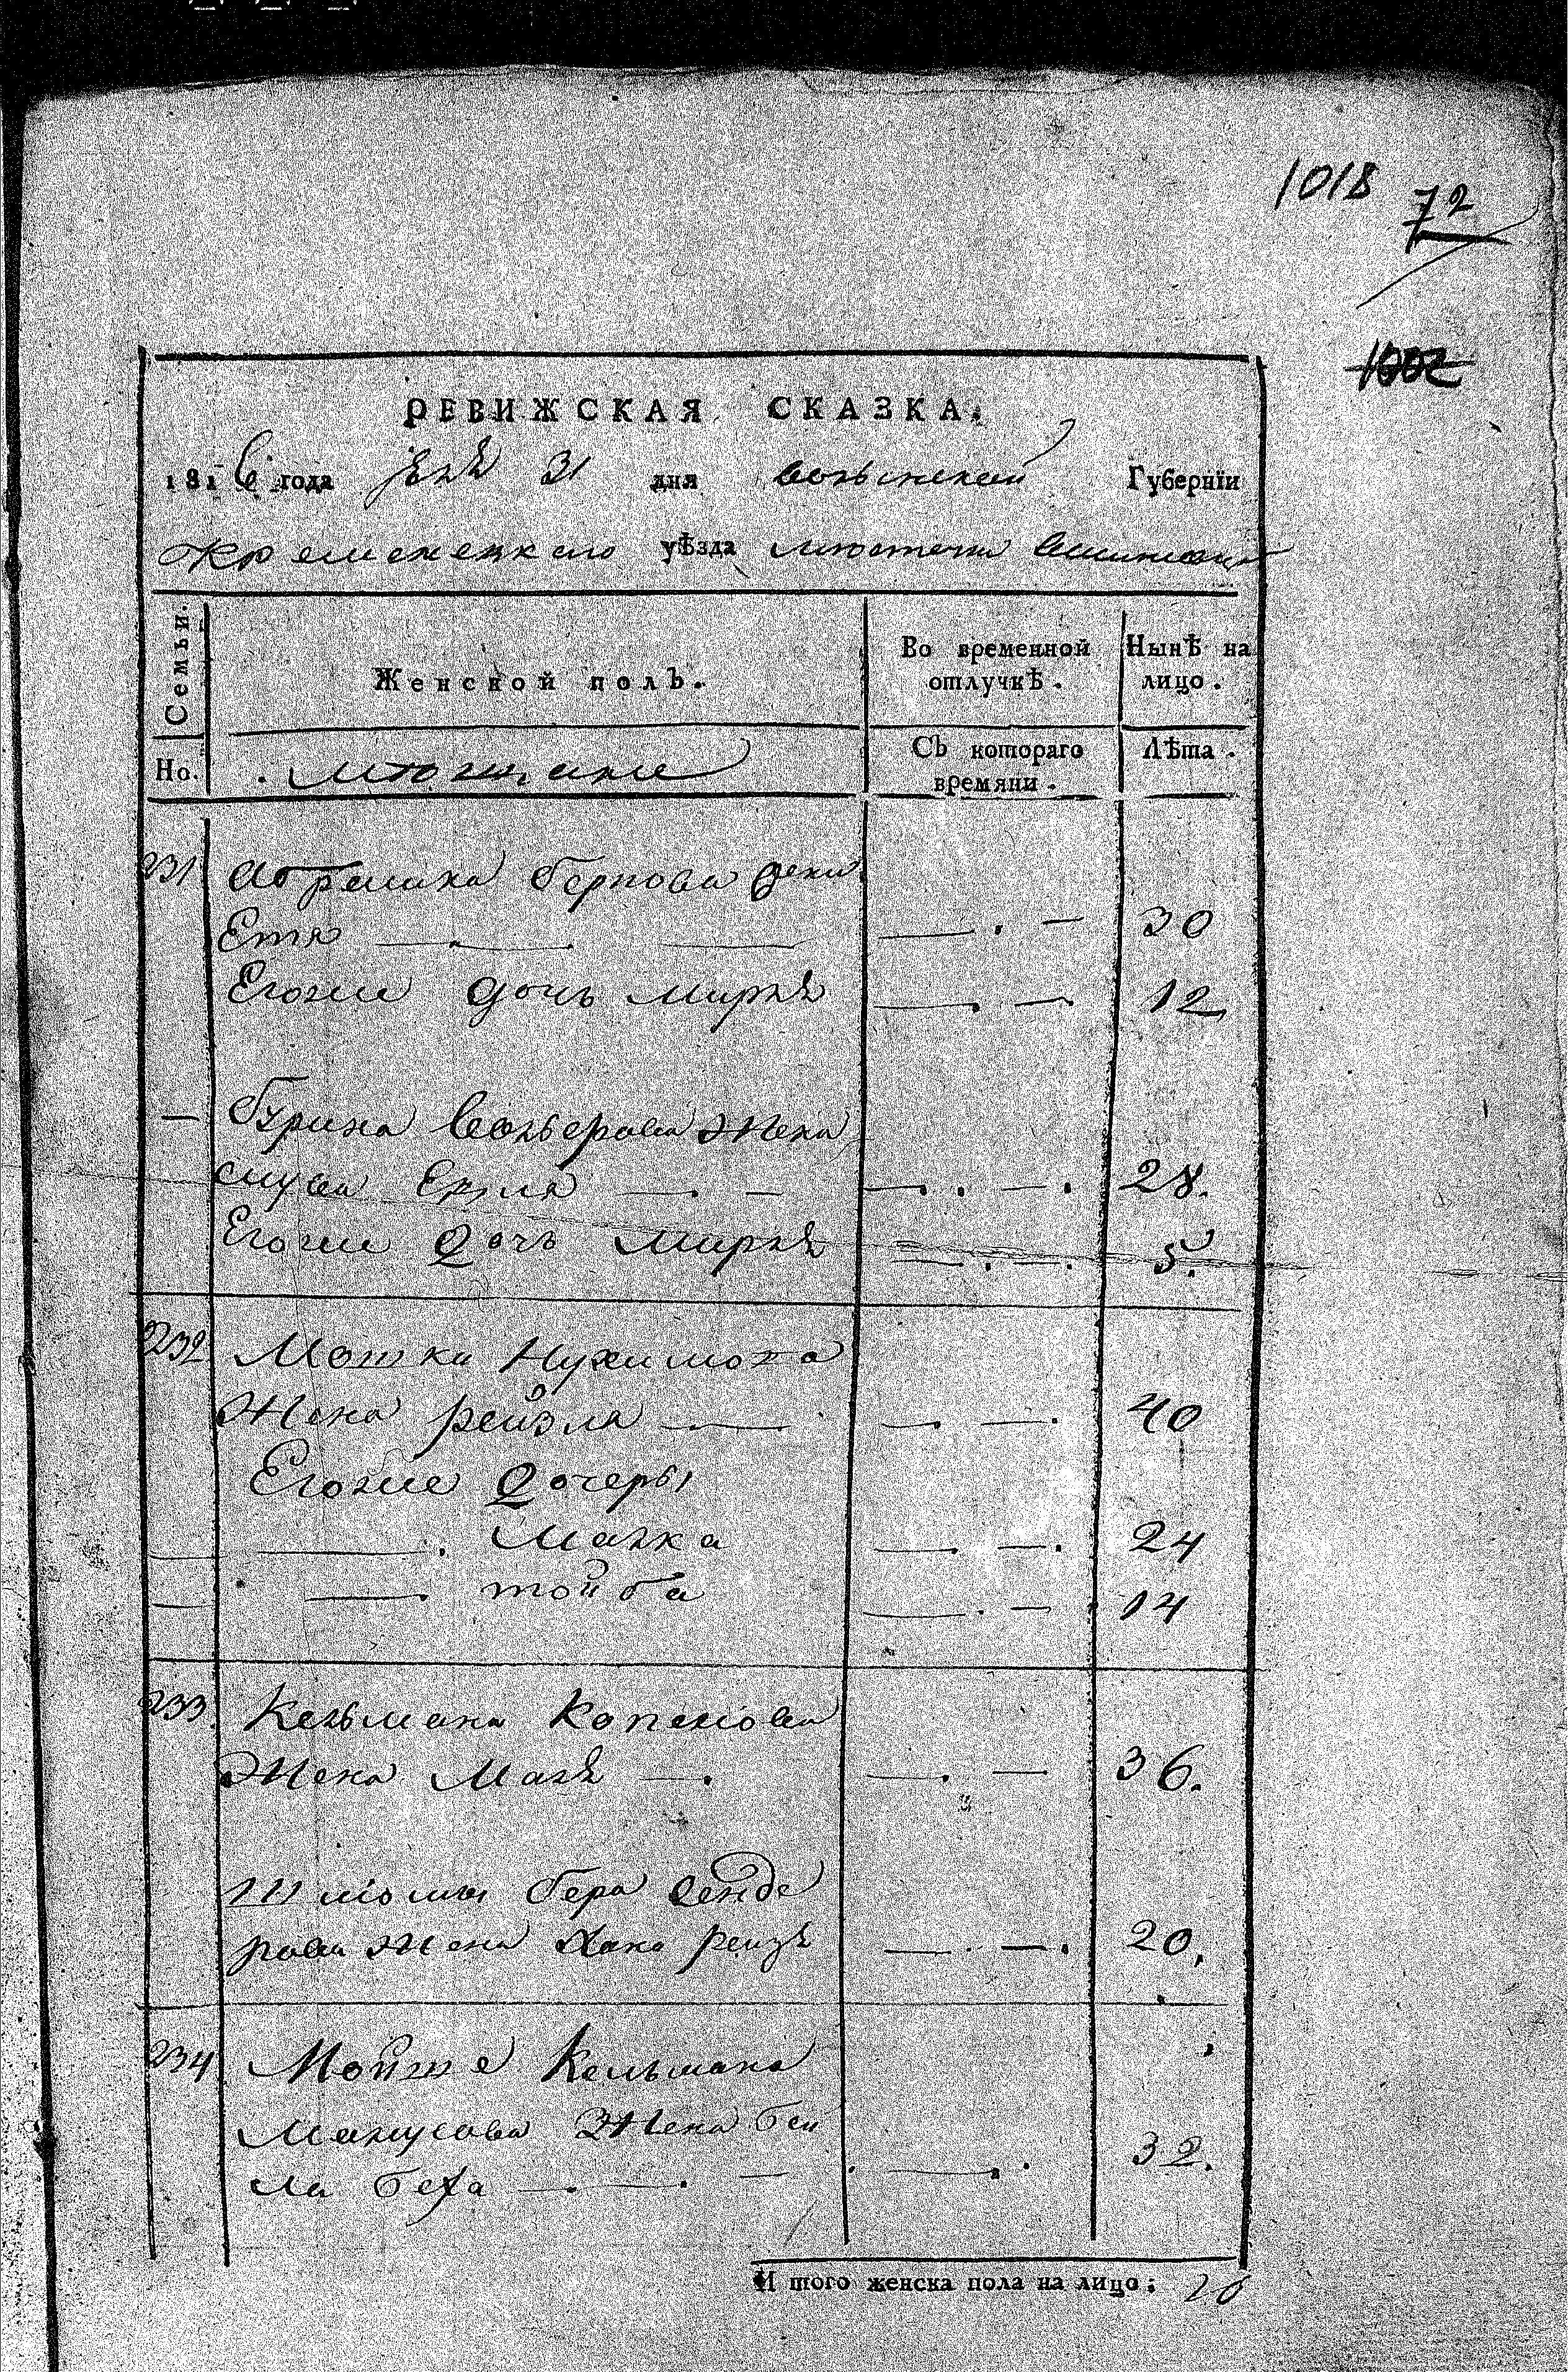 1018
72
1002
РЕВИЖСКАЯ СКАЗКА.
1816 года 31 дня Волынской Губернїи
Кременецкаго уѣзда местечка
Семьи.
Женской полъ.
Во временной отлучкѣ.
Нынѣ на лицо.
Но.
мещане
Съ котораго времяни.
Лѣта.
231 Абрамка Беркова жена
Етя — — — 30
Егоже дочь Мирля — — 12
— Волькова жена
Сура — — — 28.
Егоже дочь Мирля — — 5.
232 Мошки Нухимова
жена рейзля — — — 40
Егоже дочеры
— Малка — — 24
— тойба — — 14
233 Кельмана Копелова
жена Маля — — — 36.
Шліомы Бера Сенде
рова жена Хана рейзя — — 20.
234 Мойше Кельмана
Манусова жена Бей
ла Беха — — — 32.
И того женска пола на лицо: